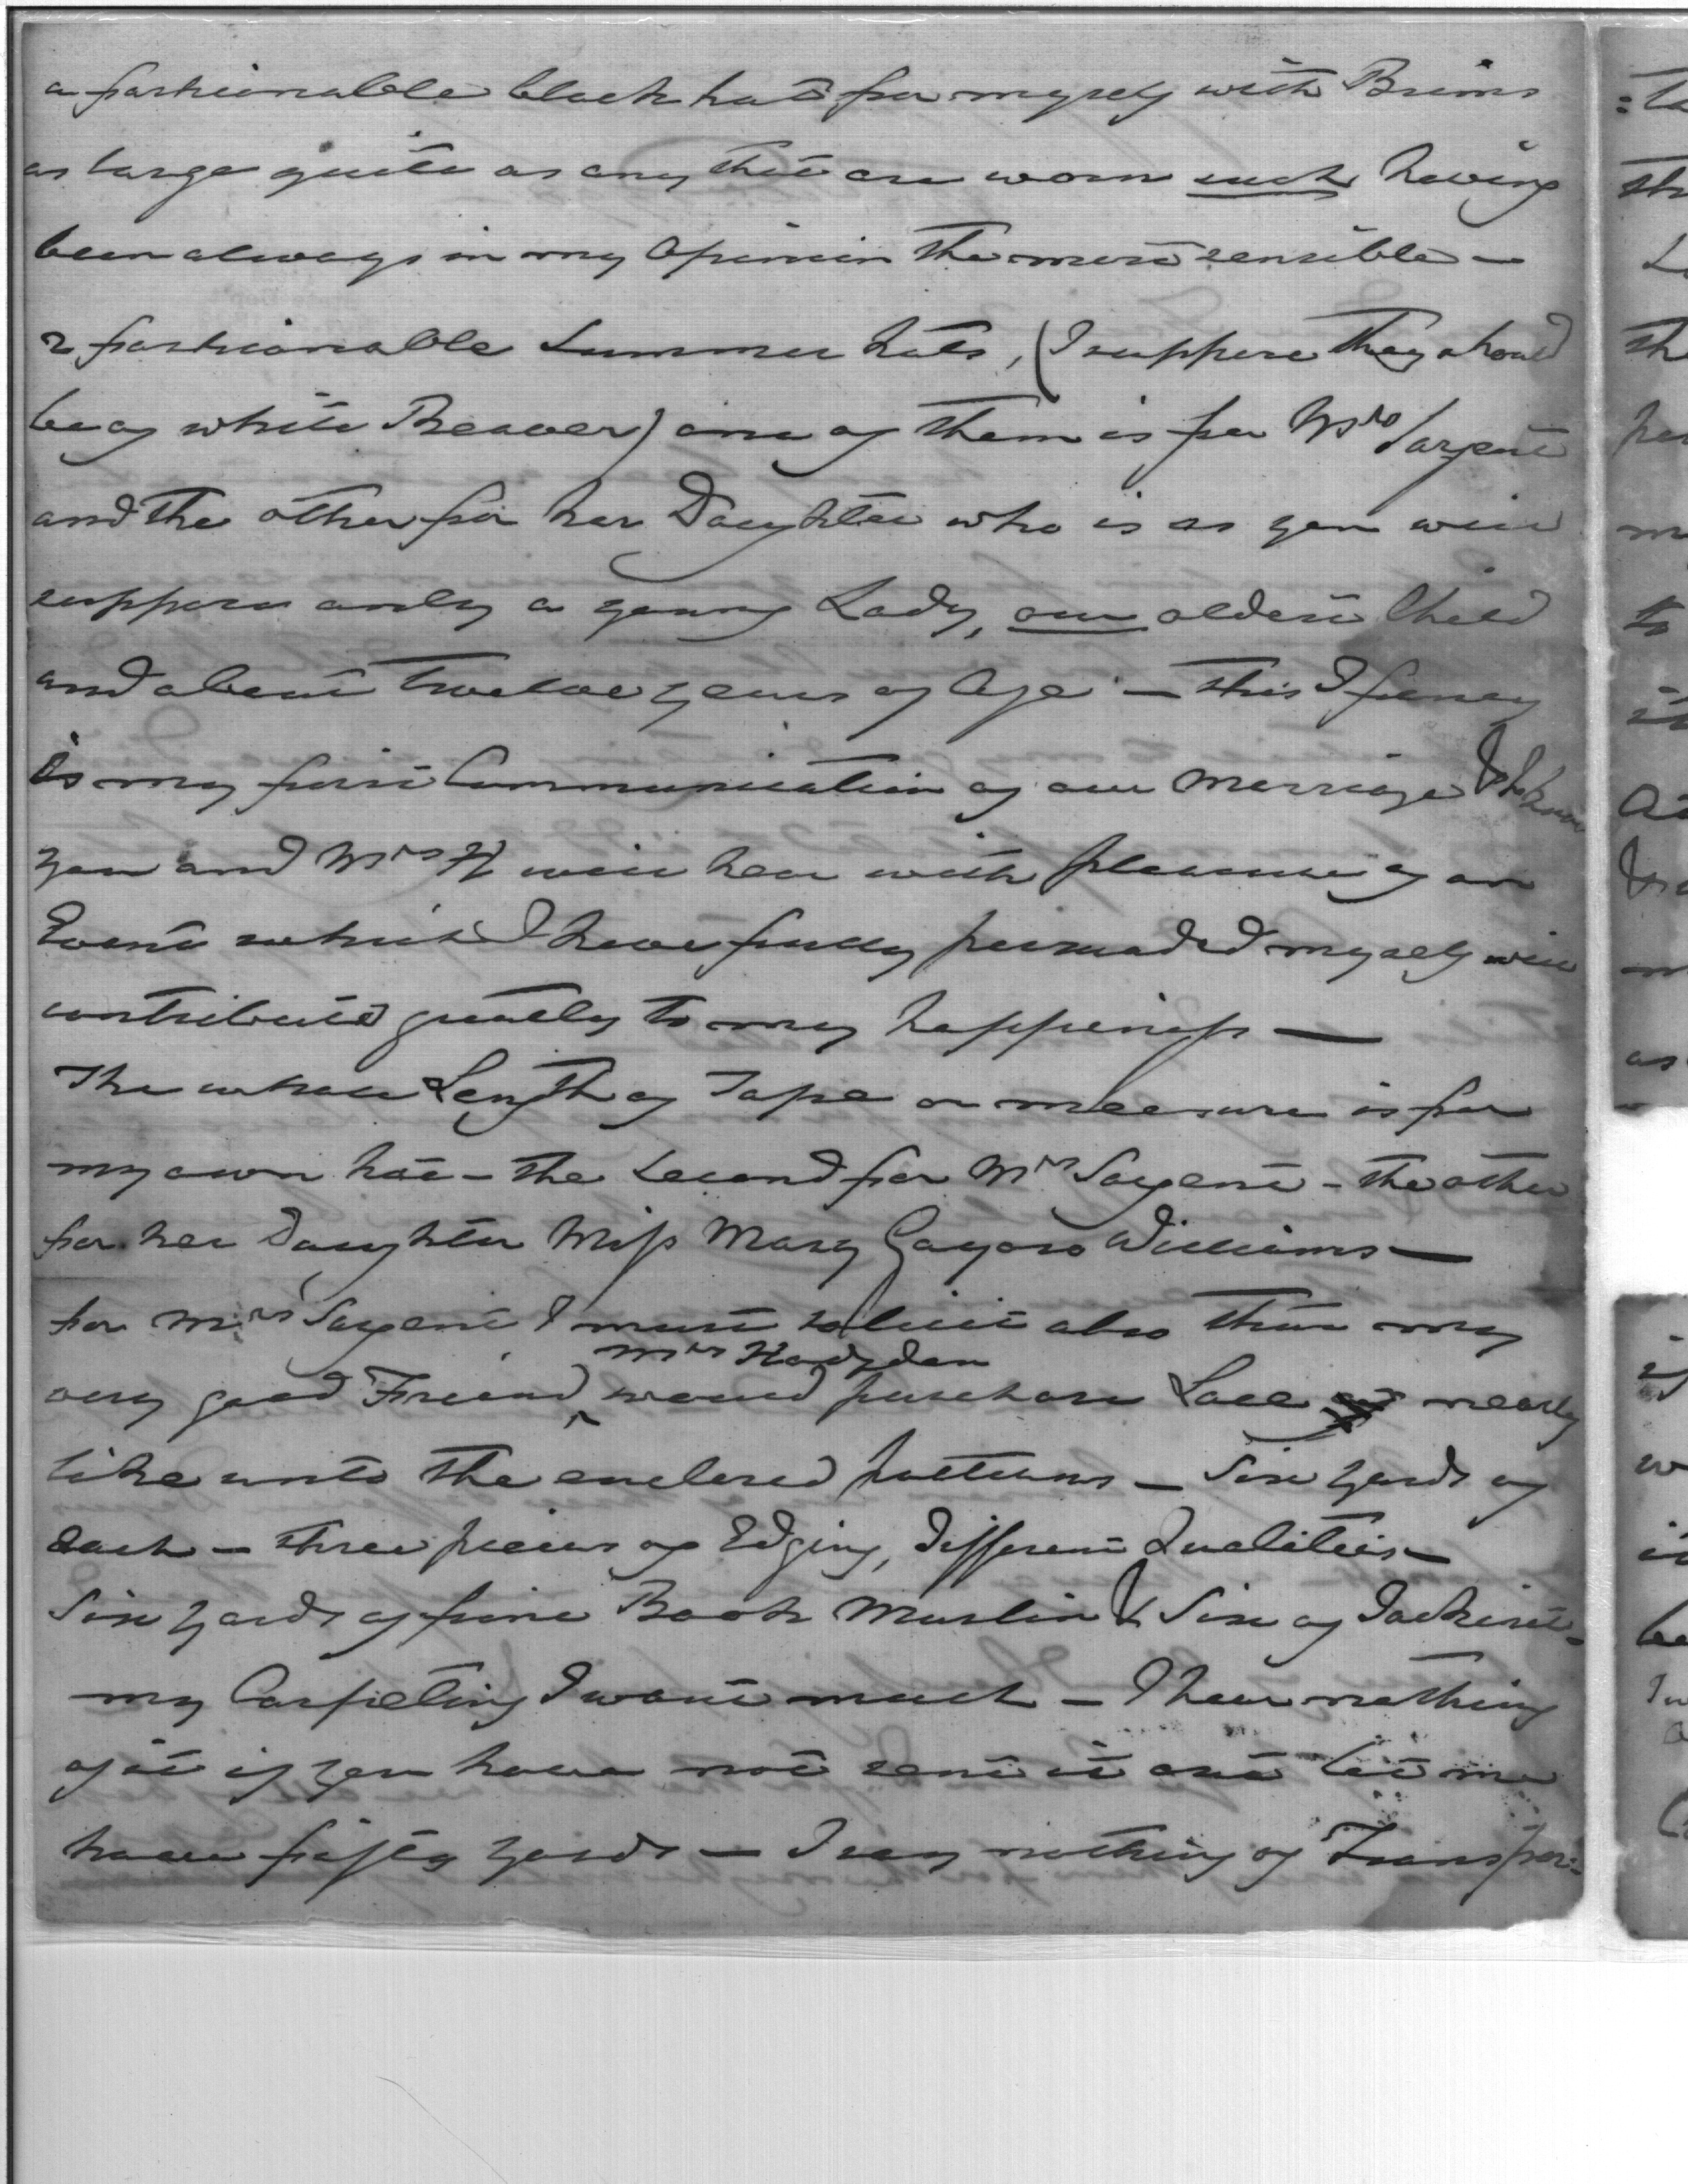 a fashionable black hat for myself with Brims
as large quite as any that are worn such having
been always in my Opinion the most sensible —
2 fashionable Summer hats, (I suppose they should
be of white Beaver) one of them is for Mrs Sargent
and the other for her Daughter who is as you will
suppose only a young Lady, our oldest Child
and about Twelve years of Age — this I fancy
is my first Communication of our Marriage &
you and Mrs H will hear with pleasure of an
Event which I have fully persuaded myself will
contribute greatly to my happiness —
The whole Length of Tape or measure is for
my own hat — the Second for Mrs Sargent — the other
for her Daughter Miss Mary Gayoso Williams —
for Mrs Sargent I must solicit also that my
very good Friend, Mrs Hodgdon would purchase Lace nearly
like unto the enclosed patterns — Six yards of
Each — three pieces of Edging, different Qualities —
Six yards of fine Book Muslin & Six of Jackonet —
my Carpeting I want much — I hear nothing
of it if you have not sent it let me
have fifty yards — I say nothing of Transpor=